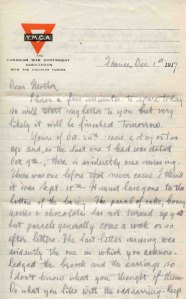 Y.M.C.A.
CANADIAN WAR CONTINGENT
ASSOCIATION
WITH THE CANADIAN FORCES
France, Dec 1st 1917
Dear Mother,
I have a few minutes to spare today
so will start my letter to you but very
likely it will be finished tomorrow.
Yours of Oct 26th came a day or two
ago and, as the last one I had was dated
Oct 9th, there is evidently one missing.
There was one before that never came I think
it was Sept 15th. It must have gone to the
bottom of the briny. The parcel of cake, honey
socks & chocolate has not turned up yet
but parcels generally come a week or so
after letters. The last letter missing was
evidently the one in which you acknow-
ledged the brooch and the earring so
I don't know what you thought of them.
Do what you like with the odd earring. Keep